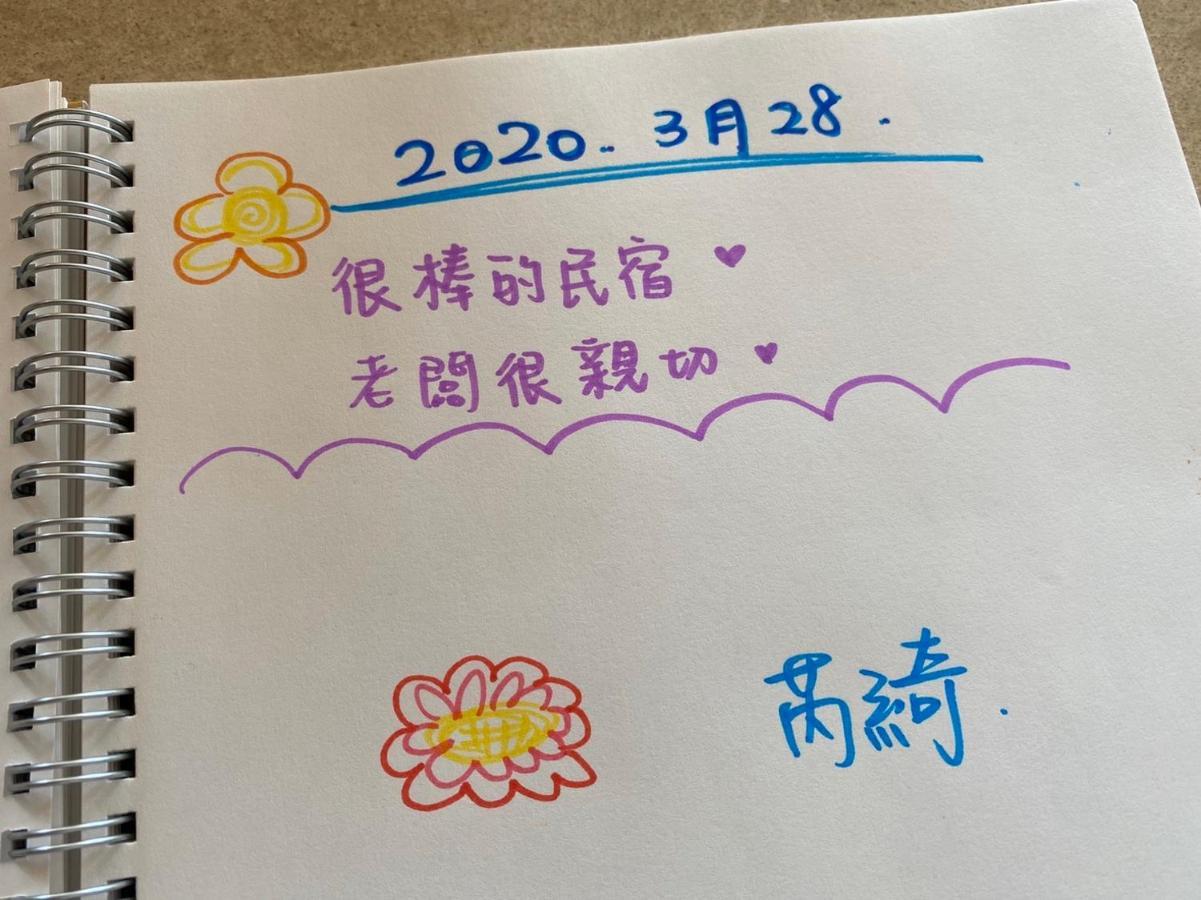 2020.. 3月28.
很棒的民宿♥
老闆很親切♥
芮綺.